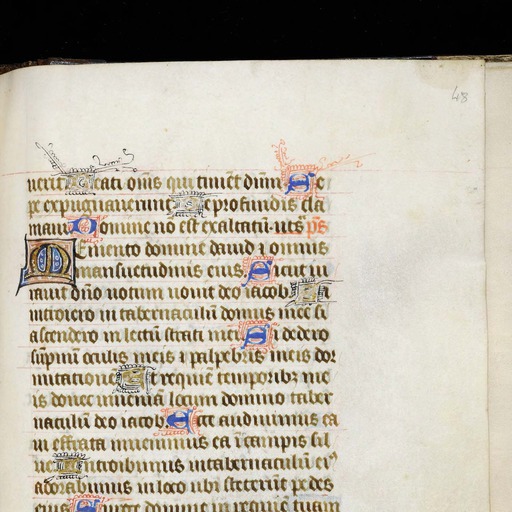 48
uerit Beati om̄s qui timēt dūm Se
pe expugnauerunt De profundis cla
maui Domine nō est exaltatū. ut sͣ ps̄
Memento domine dauid ⁊ omnis
mansuetudinis eius Sicut iu
rauit dn̄o uotum uouit deo iacob Si
introiero in tabernaculū domus mee si
ascendero in lectū strati mei Si dedero
sompnū oculis meis ⁊ palpebris meis dor
mitationē Et requiē temporibꝫ me
is donec inueniā locum domino taber
naculū deo iacob Ecce audiuimus eā
in effrata inuenimus eā ī campis sil
ue Introibimus in tabernaculū eiꝰ
adorabimus in loco ubi steterūt pedes
eius Surge domine in requiē tuam